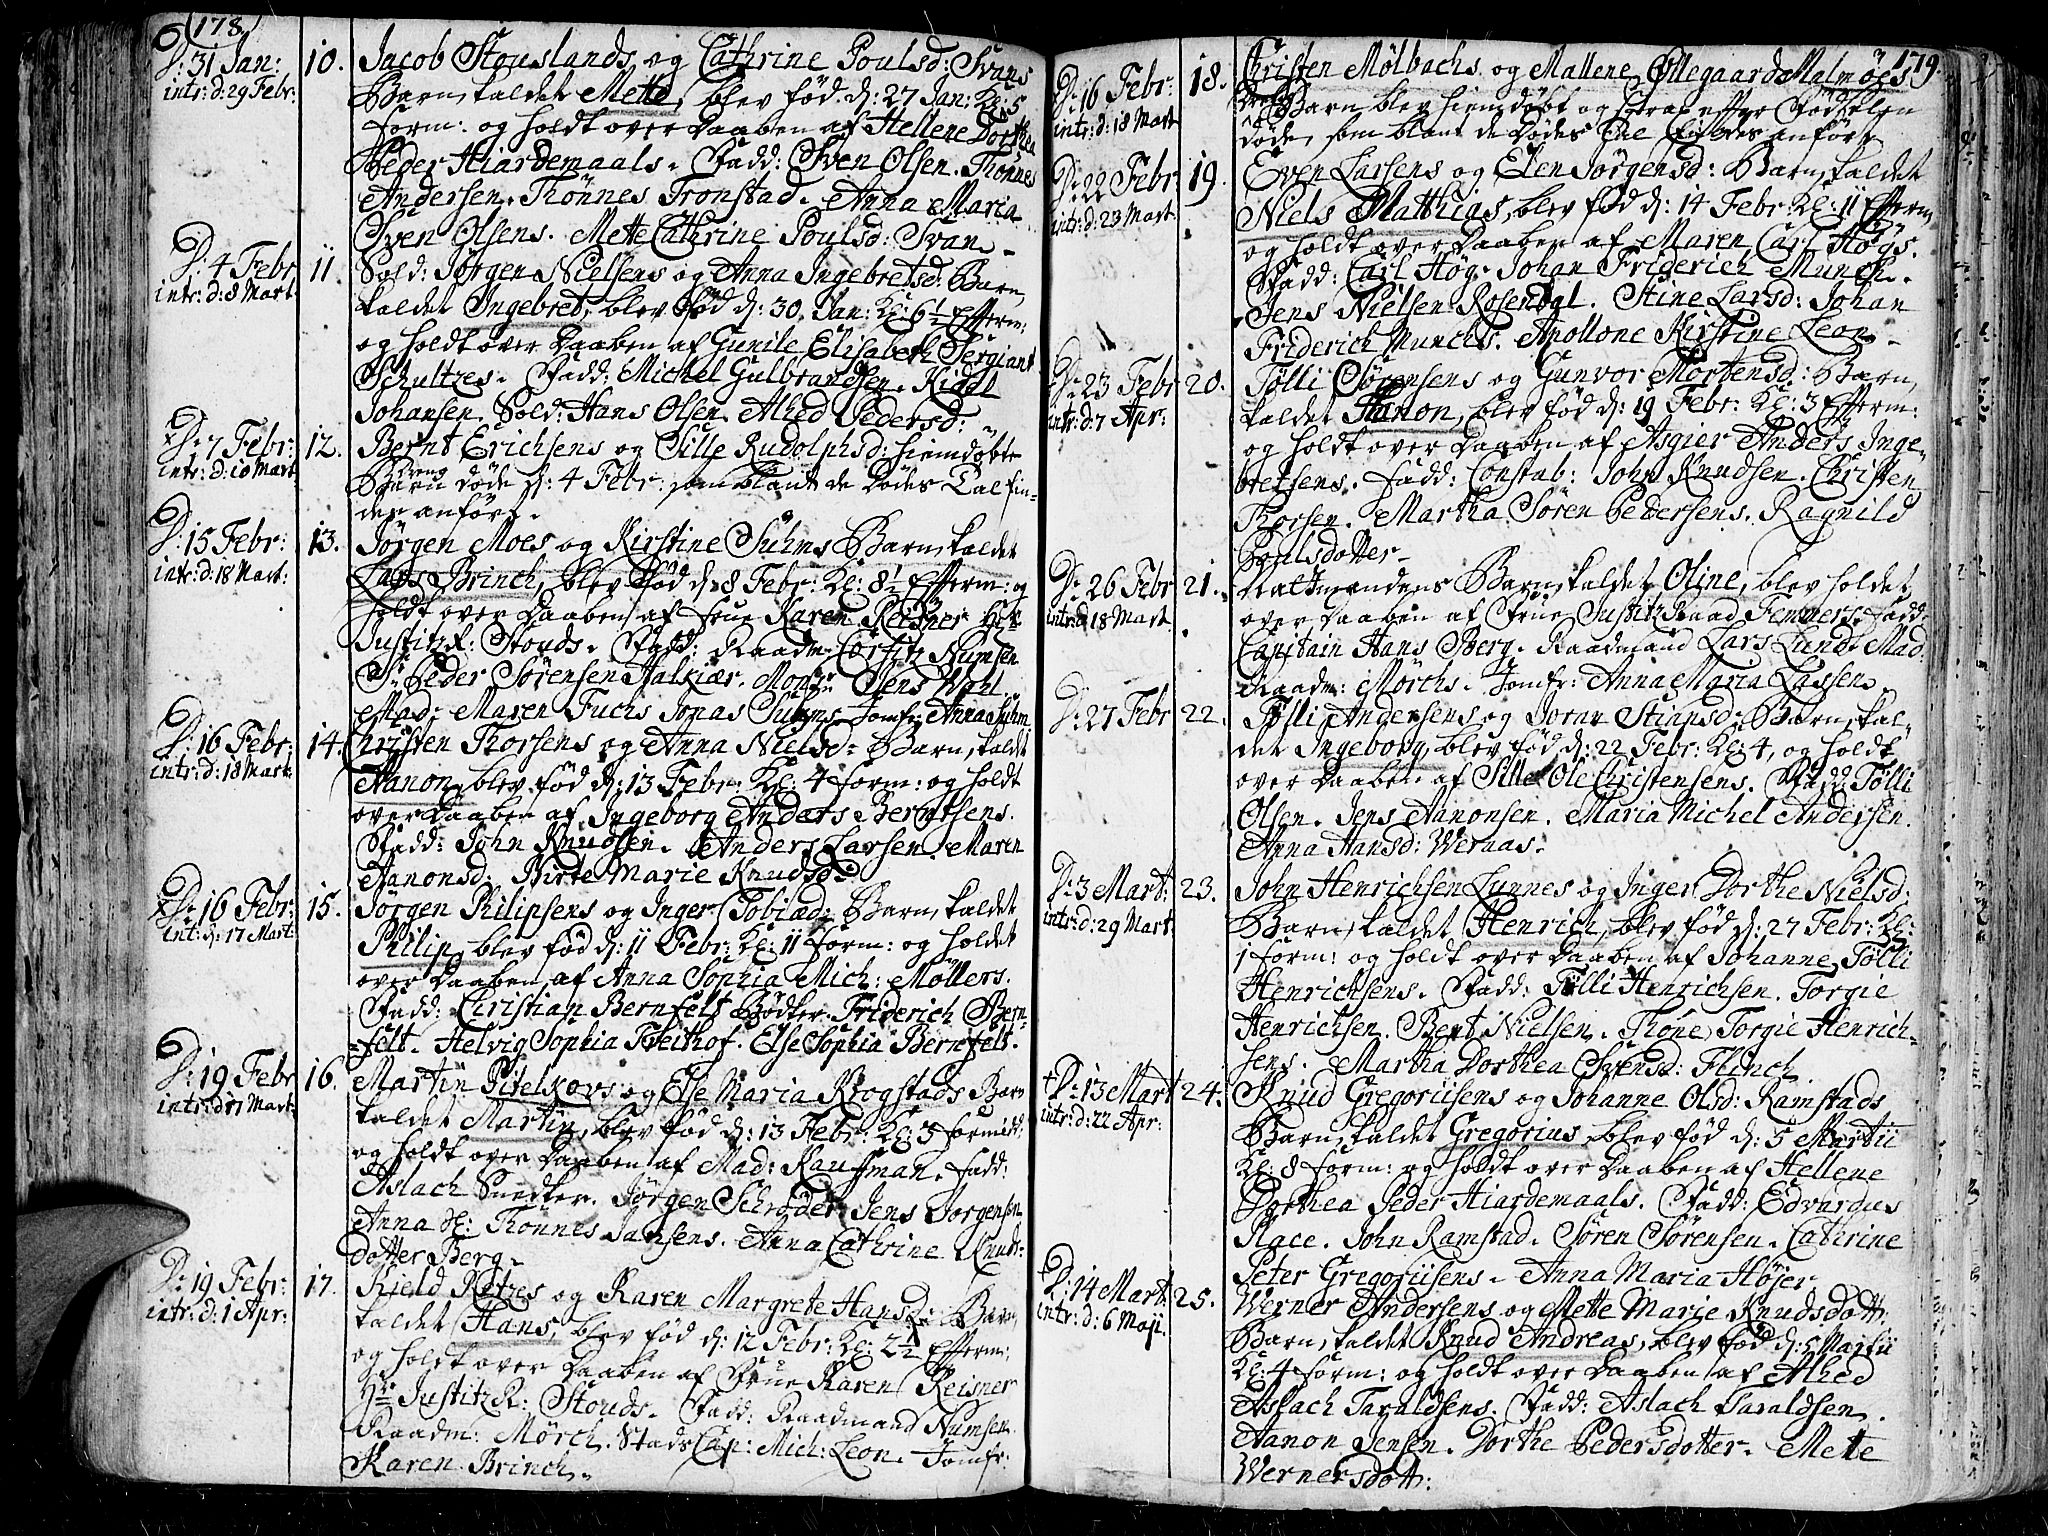 178.
D: 31 Jan: 10. Jacob Stouslands og Cathrine Poulsd: Svans
intr: d: 29 Febr: Barn, kaldet Mette, blev fød. d: 27 Jan: Kl: 5
form: og holdt over Daaben af Hellene Dorthea
Peder Hiardemaals. Fadd: Sven Olsen. Thönnes
Andersen. Thönnes Tronstad. Anna Maria
Sven Olsens. Mette Cathrine Poulsd: Svan.
D: 4 Febr 11 Sold: Jörgen Nielsens og Anna Ingebretsd: Barn,
intr: d: 8 Mart: kaldet Ingebret, blev fød d: 30. Jan: Kl: 6½ Efterm:
og holdt over Daaben af Gunile Elisabeth Sergiant
Schultzes. Fadd: Michel Gulbrandsen. Kield
Johansen. Sold: Hans Olsen. Alhed Pedersd:
D: 7 Febr: 12. Bernt Erichsens og Sille Rudolphsd: hiemdøbte
intr: d: 10 Mart Dreng Barn døde d: 4 Febr: som blant de Dødes Tal fin-
des anført.
D: 15 Febr: 13. Jörgen Moes og Kirstine Suhms Barn, kaldet
intr: d: 18 Mart: Lars Brinch, blev fød d: 8 Febr: Kl: 8½ Efterm: og
holdt over Daaben af Frue Karen Reisner Hr.
Justitz R: Stouds. Fadd: Raadm: Corfitz Numsen
Sr Peder Sørensen Halkiær. Monsr Jens Wahl.
Mad: Maren Fuchs Jonas Suhms. Jomfr: Anna Suhm
D: 16 Febr: 14. Christen Thorsens og Anna Nielsd: Barn, kaldet
intr: d: 18 Mart: Aanon, blev fød d: 13 Febr: Kl: 4 form: og holdt
over Daaben af Ingeborg Anders Berntsens.
Fadd: John Knudsen. Anders Larsen. Maren
Aanonsd: Birte Marie Knudsd:
D: 16 Febr: 15. Jörgen Philipsens og Inger Tobiæd: Barn, kaldet
int: d: 17 Mart: Philip, blev fød d: 11 Febr: Kl: 11 form: og holdet
over Daaben af Anna Sophia Mich: Möllers.
Fadd: Christian Bernfelt Bødker. Friderich Bern-
felt. Helvig Sophia Freithof. Else Sophia Bernfelt.
D: 19 Febr 16. Martin Piselkovs og Else Maria Krogstads Barn
intr: d: 17 Mart: kaldet Martin, blev fød d: 13 Febr: Kl: 3 formidd:
og holdt over Daaben af Mad: Kauffman. Fadd:
Aslach Snedker. Jörgen Schröder. Jens Jorgensen
Anna Thönnes Jansens. Anna Cathrine Knuds-
dotter Berg.
D: 19 Febr: 17. Kield Retzes og Karen Margrete Hansd: Barn,
intr: d: 1 Apr: kaldet Hans, blev fød d: 12 Febr: Kl: 2½ Efterm:
og holdt over Daaben af Frue Karen Reisner
Hr Justitz R: Stouds. Fadd: Raadmand Numsen.
Raadm: Mörch. Stads Cap: Mich: Leon. Jomfr:
Karen Brinch.
179.
D: 16 Febr: 18. Christen Mölbachs og Mallene Øllegaard Malmöes
intr: d: 18 Mart Dreng Barn blev hiemdøbt og strax efter Fødselen
døde, som blant de Dødes Tal findes anført
D: 22 Febr 19. Even Larsens og Elen Jörgensd: Barn, kaldet
intr: d: 23 Mart: Niels Matthias, blev fød d: 14 Febr: Kl: 11 Efterm:
og holdt over Daaben af Maren Carl Högs.
Fadd: Carl Hög. Johan Friderich Munch.
Jens Nielsen Rosendal. Stine Larsd: Johan
Friderich Munchs. Apollone Kirstine Leon.
D: 23 Febr 20. Tölli Sörensens og Gunvor Mortensd: Barn,
intr: d: 7 Apr: kaldet Aanon, blev fød d: 19 Febr: Kl: 3 Efterm:
og holdt over Daaben af Asgier Anders Inge-
bretsens. Fadd: Constab: John Knudsen. Christen
Thorsen. Martha Sören Pedersens. Ragnild
Poulsdotter.
D: 26 Febr 21. Natmandens Barn, kaldet Oline, blev holdet
intr: d: 18 Mart. over Daaben af Frue Justitz Raad Femmers. Fadd:
Capitain Hans Berg. Raadmand Lars Lund. Mad:
Raadm: Mörchs. Jomfr: Anna Maria Lassen.
D: 27 Febr 22. Tölli Andersens og Joran Stiansd: Barn, kal-
det Ingeborg, blev fød d: 22 Febr: Kl: 4, og holdt
over Daaben af Sille Ole Christensens. Fadd: Tölli
Olsen. Jens Aanonsen. Maria Michel Andersen.
Anna Hansd: Weraas.
D: 3 Mart: 23. John Henrichsen Lunnes og Inger Dorthe Nielsd:
intr: d: 29 Mart: Barn, kaldet Henrich, blev fød d: 27 Febr: Kl:
1 form: og holdt over Daaben af Johanne Tölli
Henrichsens. Fadd: Tölli Henrichsen. Torgie
Henrichsen. Bent Nielsen. Thone Torgie Henrich-
sens. Martha Dorthea Svensd: Flinch.
D: 13 Mart 24. Knud Gregoriisens og Johanne Olsd: Ramstads
intr: d: 22 Apr: Barn, kaldet Gregorius, blev fød d: 5 Martii
Kl: 8 form: og holdt over Daaben af Hellene
Dorthea Peder Hiardemaals. Fadd: Edvardus
Place. John Ramstad. Sören Sörensen. Cathrine
Peter Gregoriisens. Anna Maria Højer
D: 14 Mart: 25. Werner Andersens og Mette Marie Knudsdott:
intr: d: 6 Maji. Barn, kaldet Knud Andreas, blev fød d: 5 Martii
Kl: 4 form: og holdt over Daaben af Alhed
Aslach Taraldsens. Fadd: Aslach Taraldsen.
Aanon Jensen. Dorthe Pedersdotter. Mette
Wernersdott: